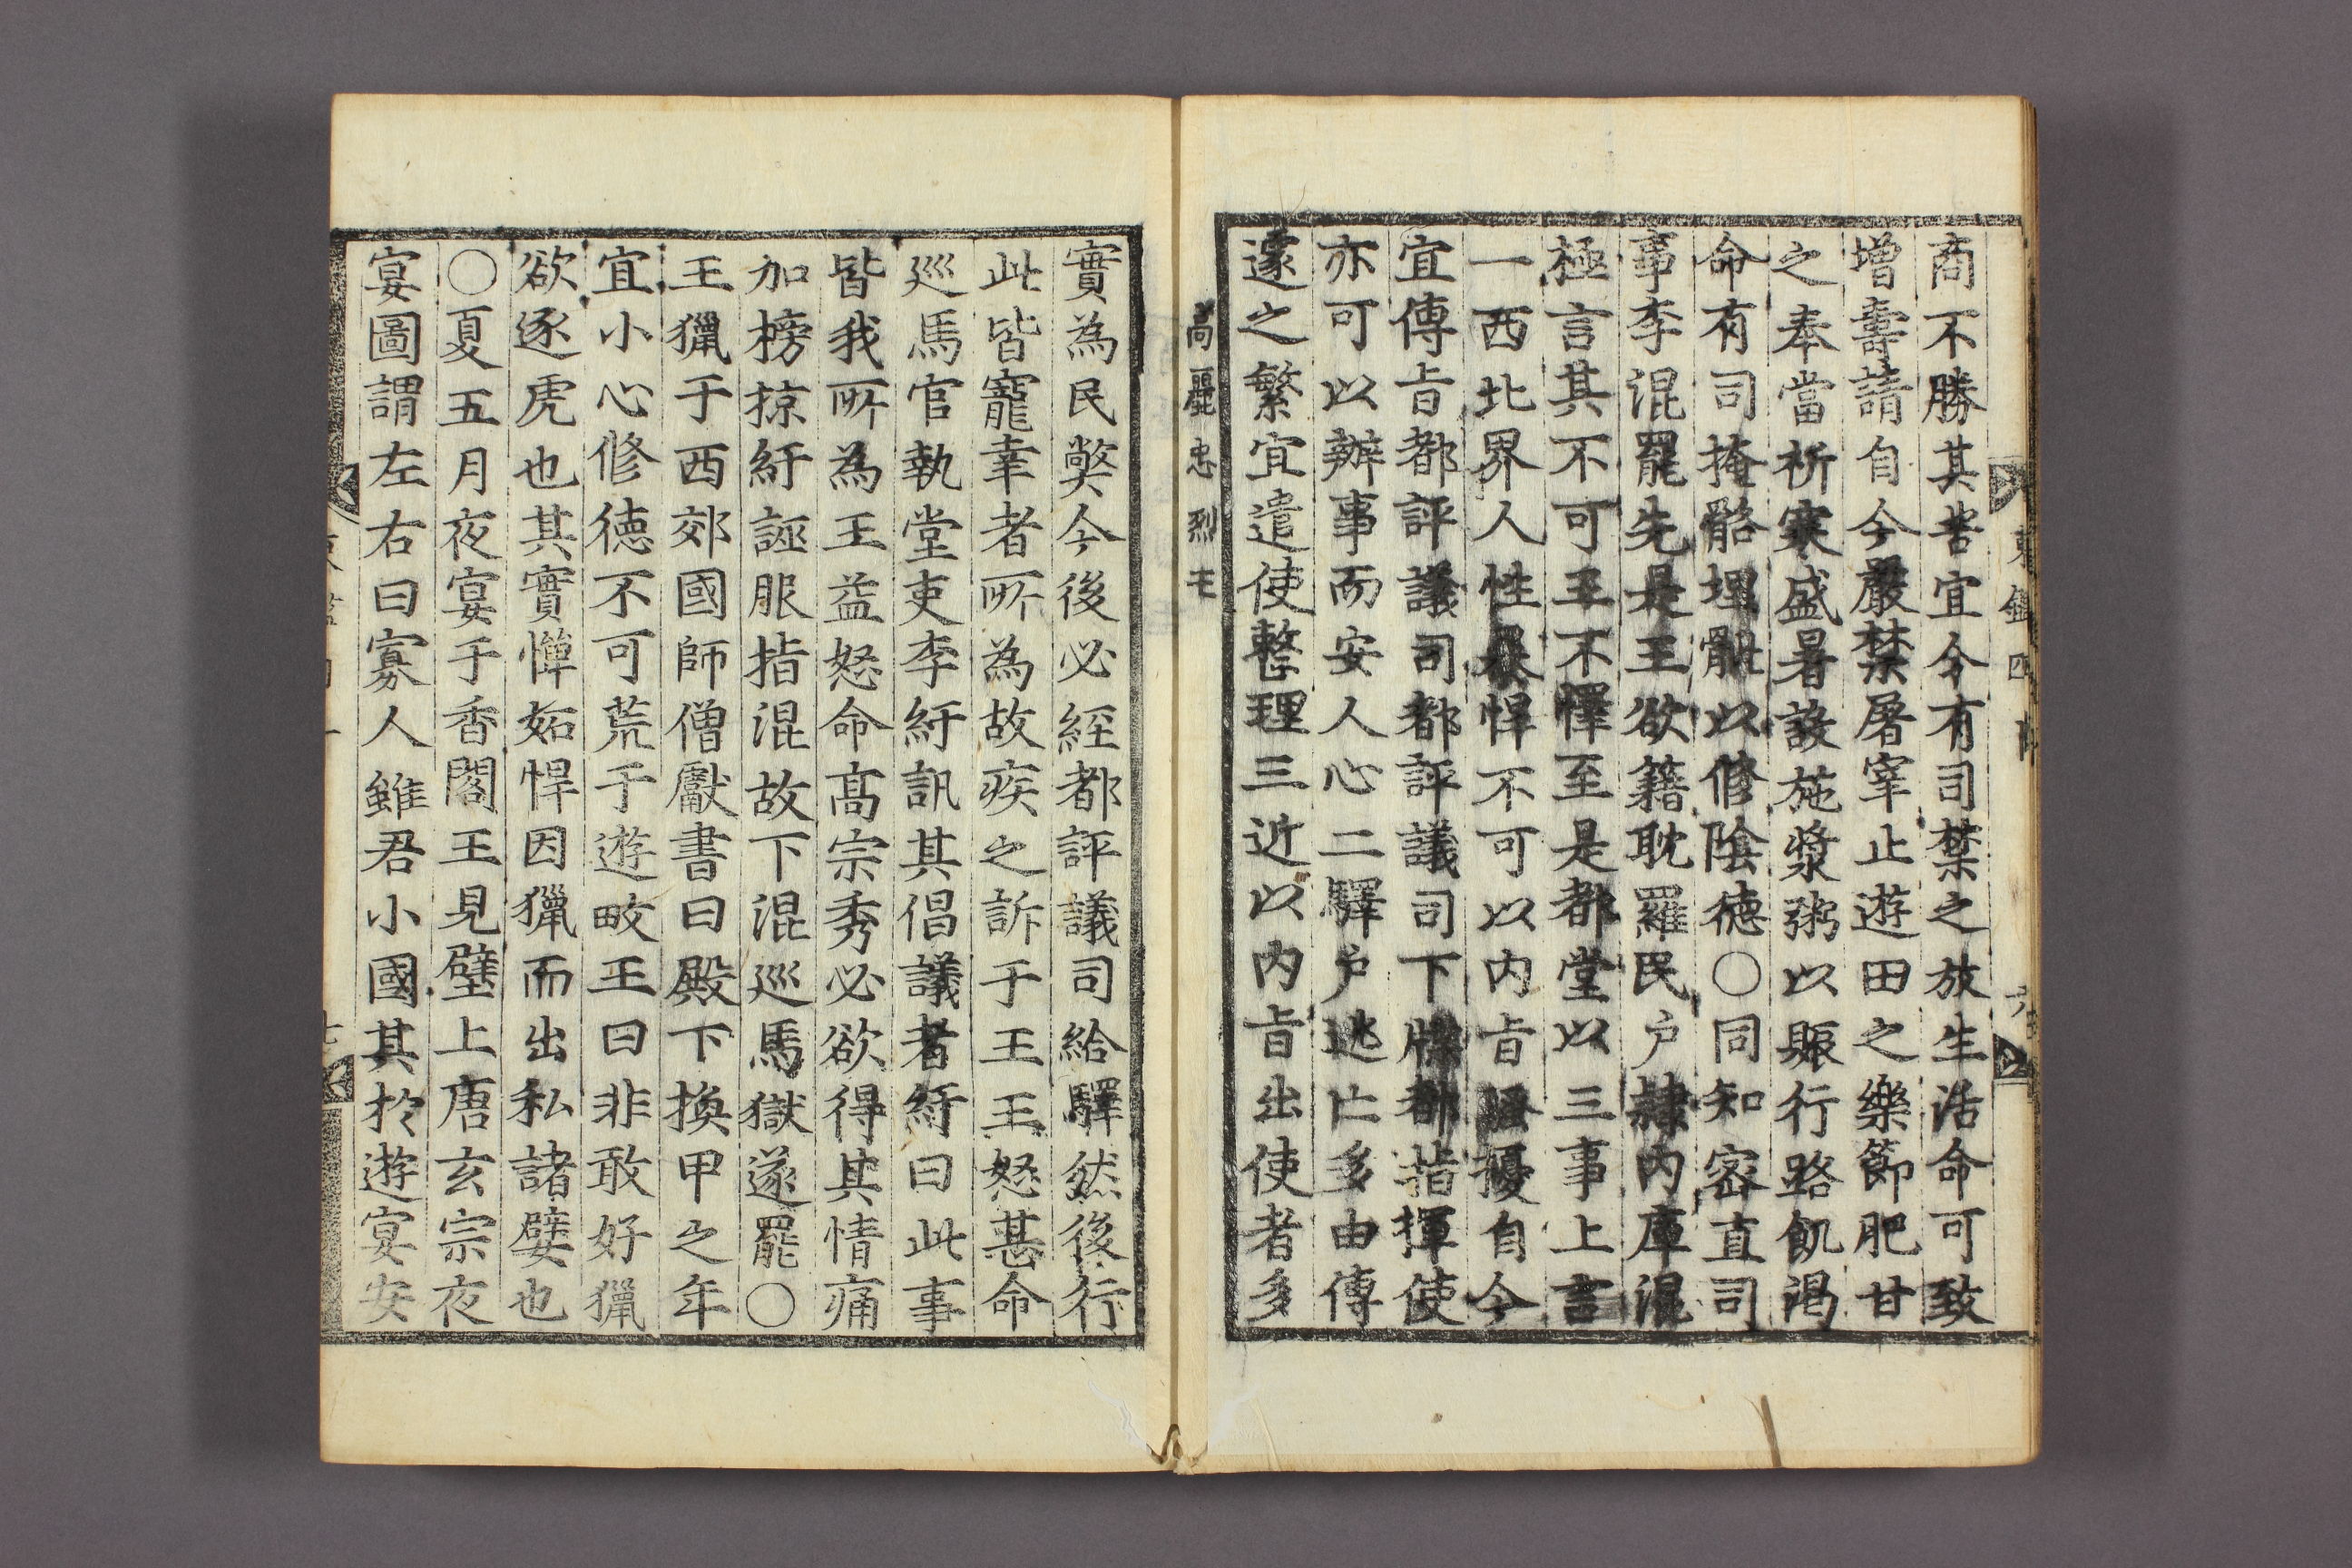 商不勝其苦宜令有司禁之放生活命可致
增壽請自今嚴禁屠宰止遊田之樂節肥甘
之奉當祈寒盛暑設施漿粥以賑行路飢渴
命有司掩骼埋骴以修陰德〇同知密直司
事李混罷先是王欲籍耽羅民户隸內庫混
極言其不可王不懌至是都堂以三事上言
一西北界人性暴悍不可以內旨騷擾自今
宜傳旨都評議司都評議司下牒都指揮使
亦可以辦事而安人心二驛户逃亡多由傳
遽之繁宜遣使整理三近以內旨出使者多
高麗忠烈王
實為民獘今後必経都評議司給驛然後行
此皆寵幸者所為故疾之訴于王王怒甚命
巡馬官執堂吏李紆訊其倡議者紆曰此事
皆我所為王益怒命髙宗秀必欲得其情痛
加榜掠紆誣服指混故下混巡馬獄遂罷〇
王獵于西郊國師僧獻書曰殿下換甲之年
宜小心修德不可荒于遊畋王曰非敢好獵
欲逐虎也其實憚妬悍因獵而出私諸嬖也
〇夏五月夜宴于香閣王見壁上唐玄宗夜
宴圖謂左右曰寡人雖君小國其於遊宴安